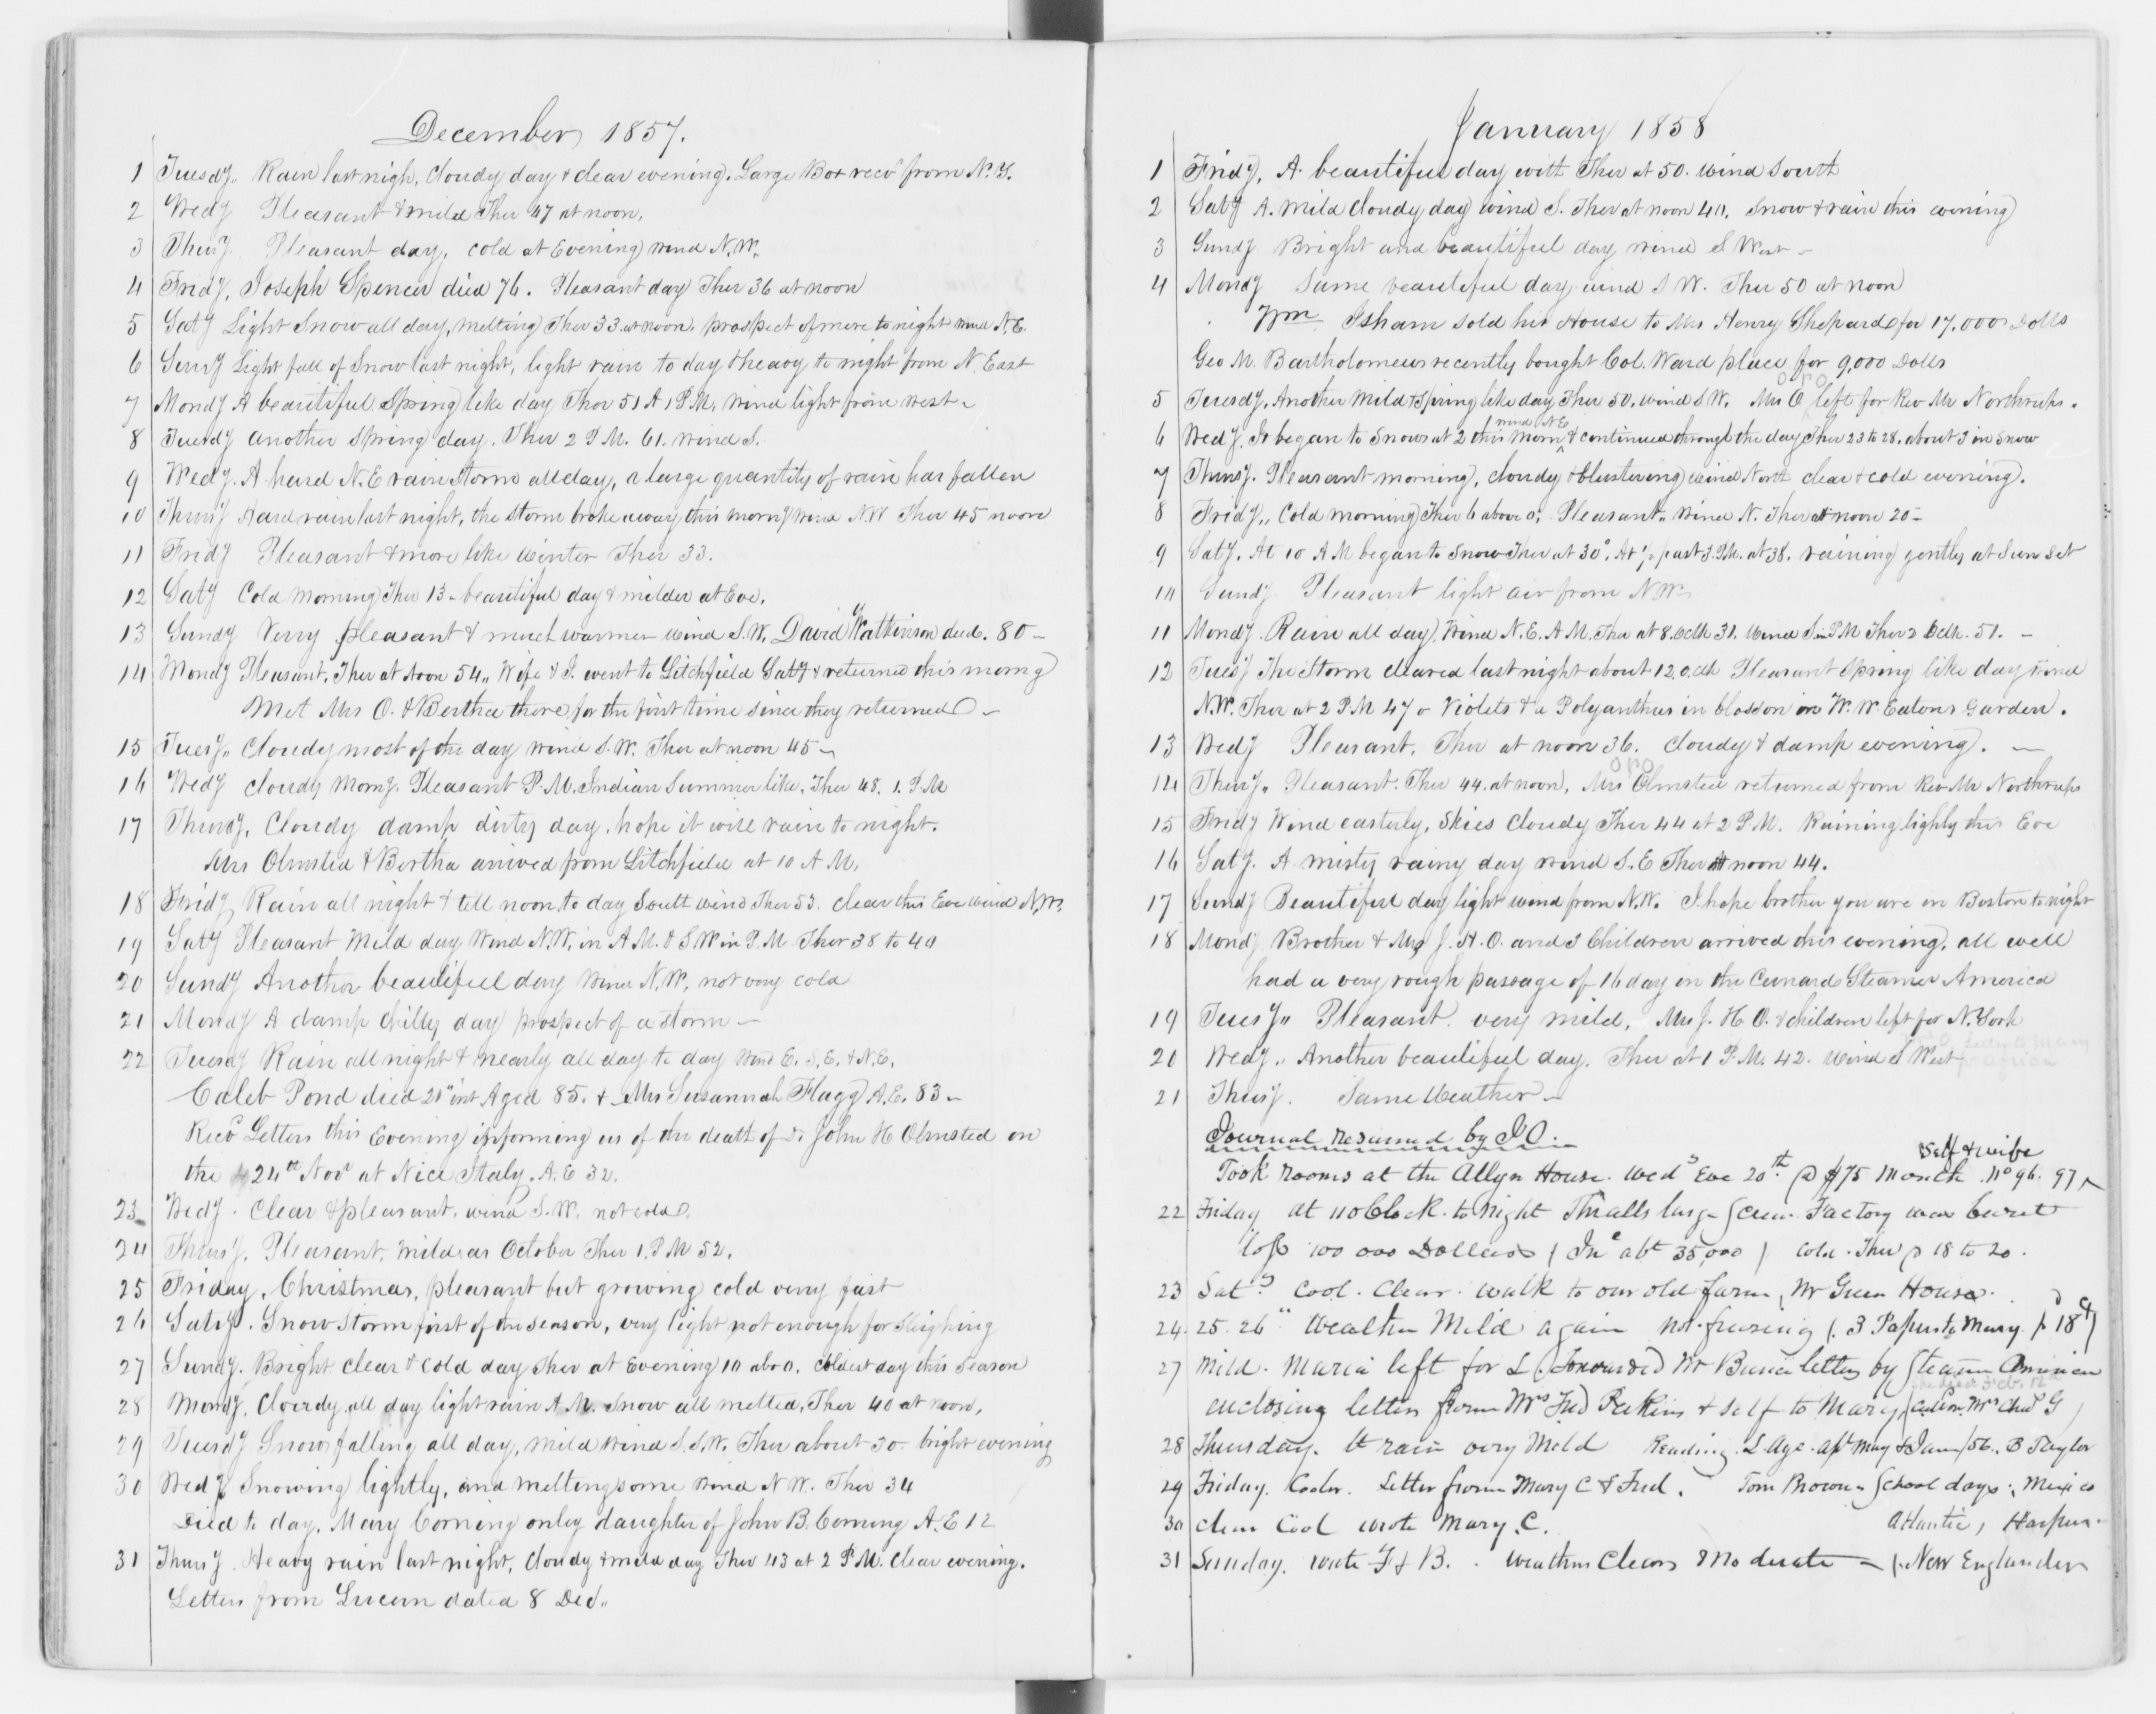 December 1857.
1 Tuesdy. Rain last nigh, Cloudy day & clear evening. Large Box recd from N.Y.
2 Wedy Pleasant & mild Ther 47 at noon,
3 Thusy. Pleasant day, cold at Evening wind N.W.
4 Fridy, Joseph Spencer died 76. Pleasant day Ther 36 at noon
5 Saty Light Snow all day, melting Ther 33 at noon, prospect of more to night wind N.E.
6 Sundy Light fall of Snow last night, light rain to day & heavy to night from N. East
7 Mondy A beautiful Spring like day Ther 51 At 1 P.M. wind light from west
8 Tuesdy another Spring day. Ther 2 P.M. 61. wind S.
9 Wedy. A hard N.E rain Storm all day, a large quantity of rain has fallen
10 Thusy Hard rain last night, the storm broke away this morng wind N.W Ther 45 noon
11 Fridy Pleasant & more like Winter Ther 33.
12 Saty Cold morning Ther 13 - beautiful day & milder at Eve.
13 Sundy Verry pleasant & much warmer wind S.W. David Watkinson died. 80 -
14 Mondy Pleasant, Ther at Noon 54,, Wife & I. went to Litchfield Saty & returned this morng
Met Mrs O. & Bertha there for the first time since they returned -
15 Tuesy,, Cloudy most of the day wind S.W. Ther at noon 45 -
16 Wedy cloudy morng. Pleasant P.M. Indian Summer like, Ther 48, 1. P.M
17 Thusdy, Cloudy damp dirty day. hope it will rain to night.
Mrs Olmsted & Bertha arrived from Litchfield at 10 A M,
18 Fridy Rain all night & till noon to day South wind Ther 53. clear this Eve wind N,W,
19 Saty Pleasant Mild day Wind N.W. in A M. & S.W in P.M Ther 38 to 40
20 Sundy Another beautifull day wind N.W, not very cold
21 Mondy A damp chilly day prospect of a storm -
22 Tuesdy Rain all night & nearly all day to day Wind E. S,E, & N,E,
Caleb Pond died 21" inst Aged 85. & Mrs Susannah Flagg A.E. 83 -
Recd Letters this Evening informing us of the death of Dr John H Olmsted on
the 24th Novr at Nice Italy. A.E 32.
23 Wedy. Clear & pleasant. wind S.W. not cold.
24 Thusy. Pleasant, mild as October Ther 1. P M 52.
25 Friday. Christmas, pleasant but growing cold very fast
26 Satuy. Snow Storm first of the season, very light not enough for Sleighing
27 Sundy. Bright clear & cold day Ther at Evening 10 abv 0. coldest day this Season
28 Mondy, Cloudy all day light rain A M. Snow all melted, Ther 40 at noon,
29 Tuesdy Snow falling all day, mild wind S.S.W. Ther about 30 bright evening
30 Wedy Snowing lightly, and melting some wind N W. Ther 34
Died to day. Mary Corning only daughter of John B. Corning A.E 12
31 Thusy. Heavy rain last night, Cloudy & mild day Ther 43 at 2 P.M. Clear evening.
Letters from Lucern dated 8 Dec,,
January 1858
1 Fridy, A beautiful day with Ther at 50. Wind South
2 Saty A. mild Cloudy day wind S. Ther at noon 40. Snow & rain this evening
3 Sundy Bright and beautiful day wind S West -
4 Mondy Same beautiful day wind S W. Ther 50 at noon
Wm Isham sold his House to Mrs Henry Shepard for 17,000 Dolls
Geo M. Bartholomew recently bought Col. Ward place for 9,000 Dolls
5 Tuesdy. Another mild & Spring like day Ther 50. wind S W. Mrs O left for Rev Mr Northrups.
wind N E
6 Wedy. It began to Snow at 2 this morn & continued through the day Ther 23 to 28. about 3 in Snow
7 Thusy. Pleasant morning, cloudy & blustering wind North clear & cold evening.
8 Fridy,, Cold morning Ther 6 above 0; Pleasant,, Wind N. Ther at noon 20 -
9 Saty. At 10 A M began to Snow Ther at 30°. At ½ past 3. P.M. at 38. raining gently at Sun Set
10 Sundy Pleasant light air from N.W.
11 Mondy. Rain all day. Wind N.E. A M. Ther at 8. Oclk 31. Wind S. in P M Ther 2 Oclk. 51. -
12 Tuesy The Storm cleared last night about 12. o.clk Pleasant Spring like day wind
N.W. Ther at 2 P M 47 - Violets & a Polyanthus in blossom in W. W Eatons Garden.
13 Wedy Pleasant. Ther at noon 36. Cloudy & damp evening. -
14 Thusy,, Pleasant. Ther 44. at noon, Mrs Olmsted returned from Rev Mr Northrups
15 Fridy Wind easterly, Skies cloudy Ther 44 at 2 P M. Raining lighly this Eve
16 Saty. A misty rainy day wind S.E Ther at noon 44.
17 Sundy Beautiful day light wind from N.W. I hope brother you are in Boston to night
18 Mondy Brother & Mrs J. H. O. and 3 Children arrived this evening, all well
had a very rough passage of 16 day in the Cunard Steamer America
19 Tuesy,, Pleasant very mild, Mrs J. H O. & children left for N. York
20 Wedy,, Another beautiful day. Ther at 1 P.M. 42. wind S West
21 Thusy. Same Weather -
Journal resumed by J O. -
self & wife
Took rooms at the Allyn House. Wedy Eve 20th @ $75 Month. No 96. 97
22 Friday at 11 oClock. to night Thralls large Screw Factory was burnt
loss 100 000 Dollars (Ine abt 35,000) Cold. Ther 18 to 20.
23 Saty Cool. Clear. walk to our old farm, Mr Green House.
24. 25. 26" Weather Mild again not freezing (. 3 Papers to Mary 18ct)
27 Mild. Maria left for L (Forwarded Mr letter by Steam America
enclosing letter from Mrs Fred Perkins & self to Mary
28 Thursday. lt rain very Mild Reading. L Age. apl May & June/56. B Taylor
29 Friday. Cooler. Letter from Mary C & Fred. Tom Browns School days. Mexico
30 Clear Cool wrote Mary. C. Atlantic, Harpers
31 Sunday. wrote F & B. . Weather Clear & Moderate - (. New Englander